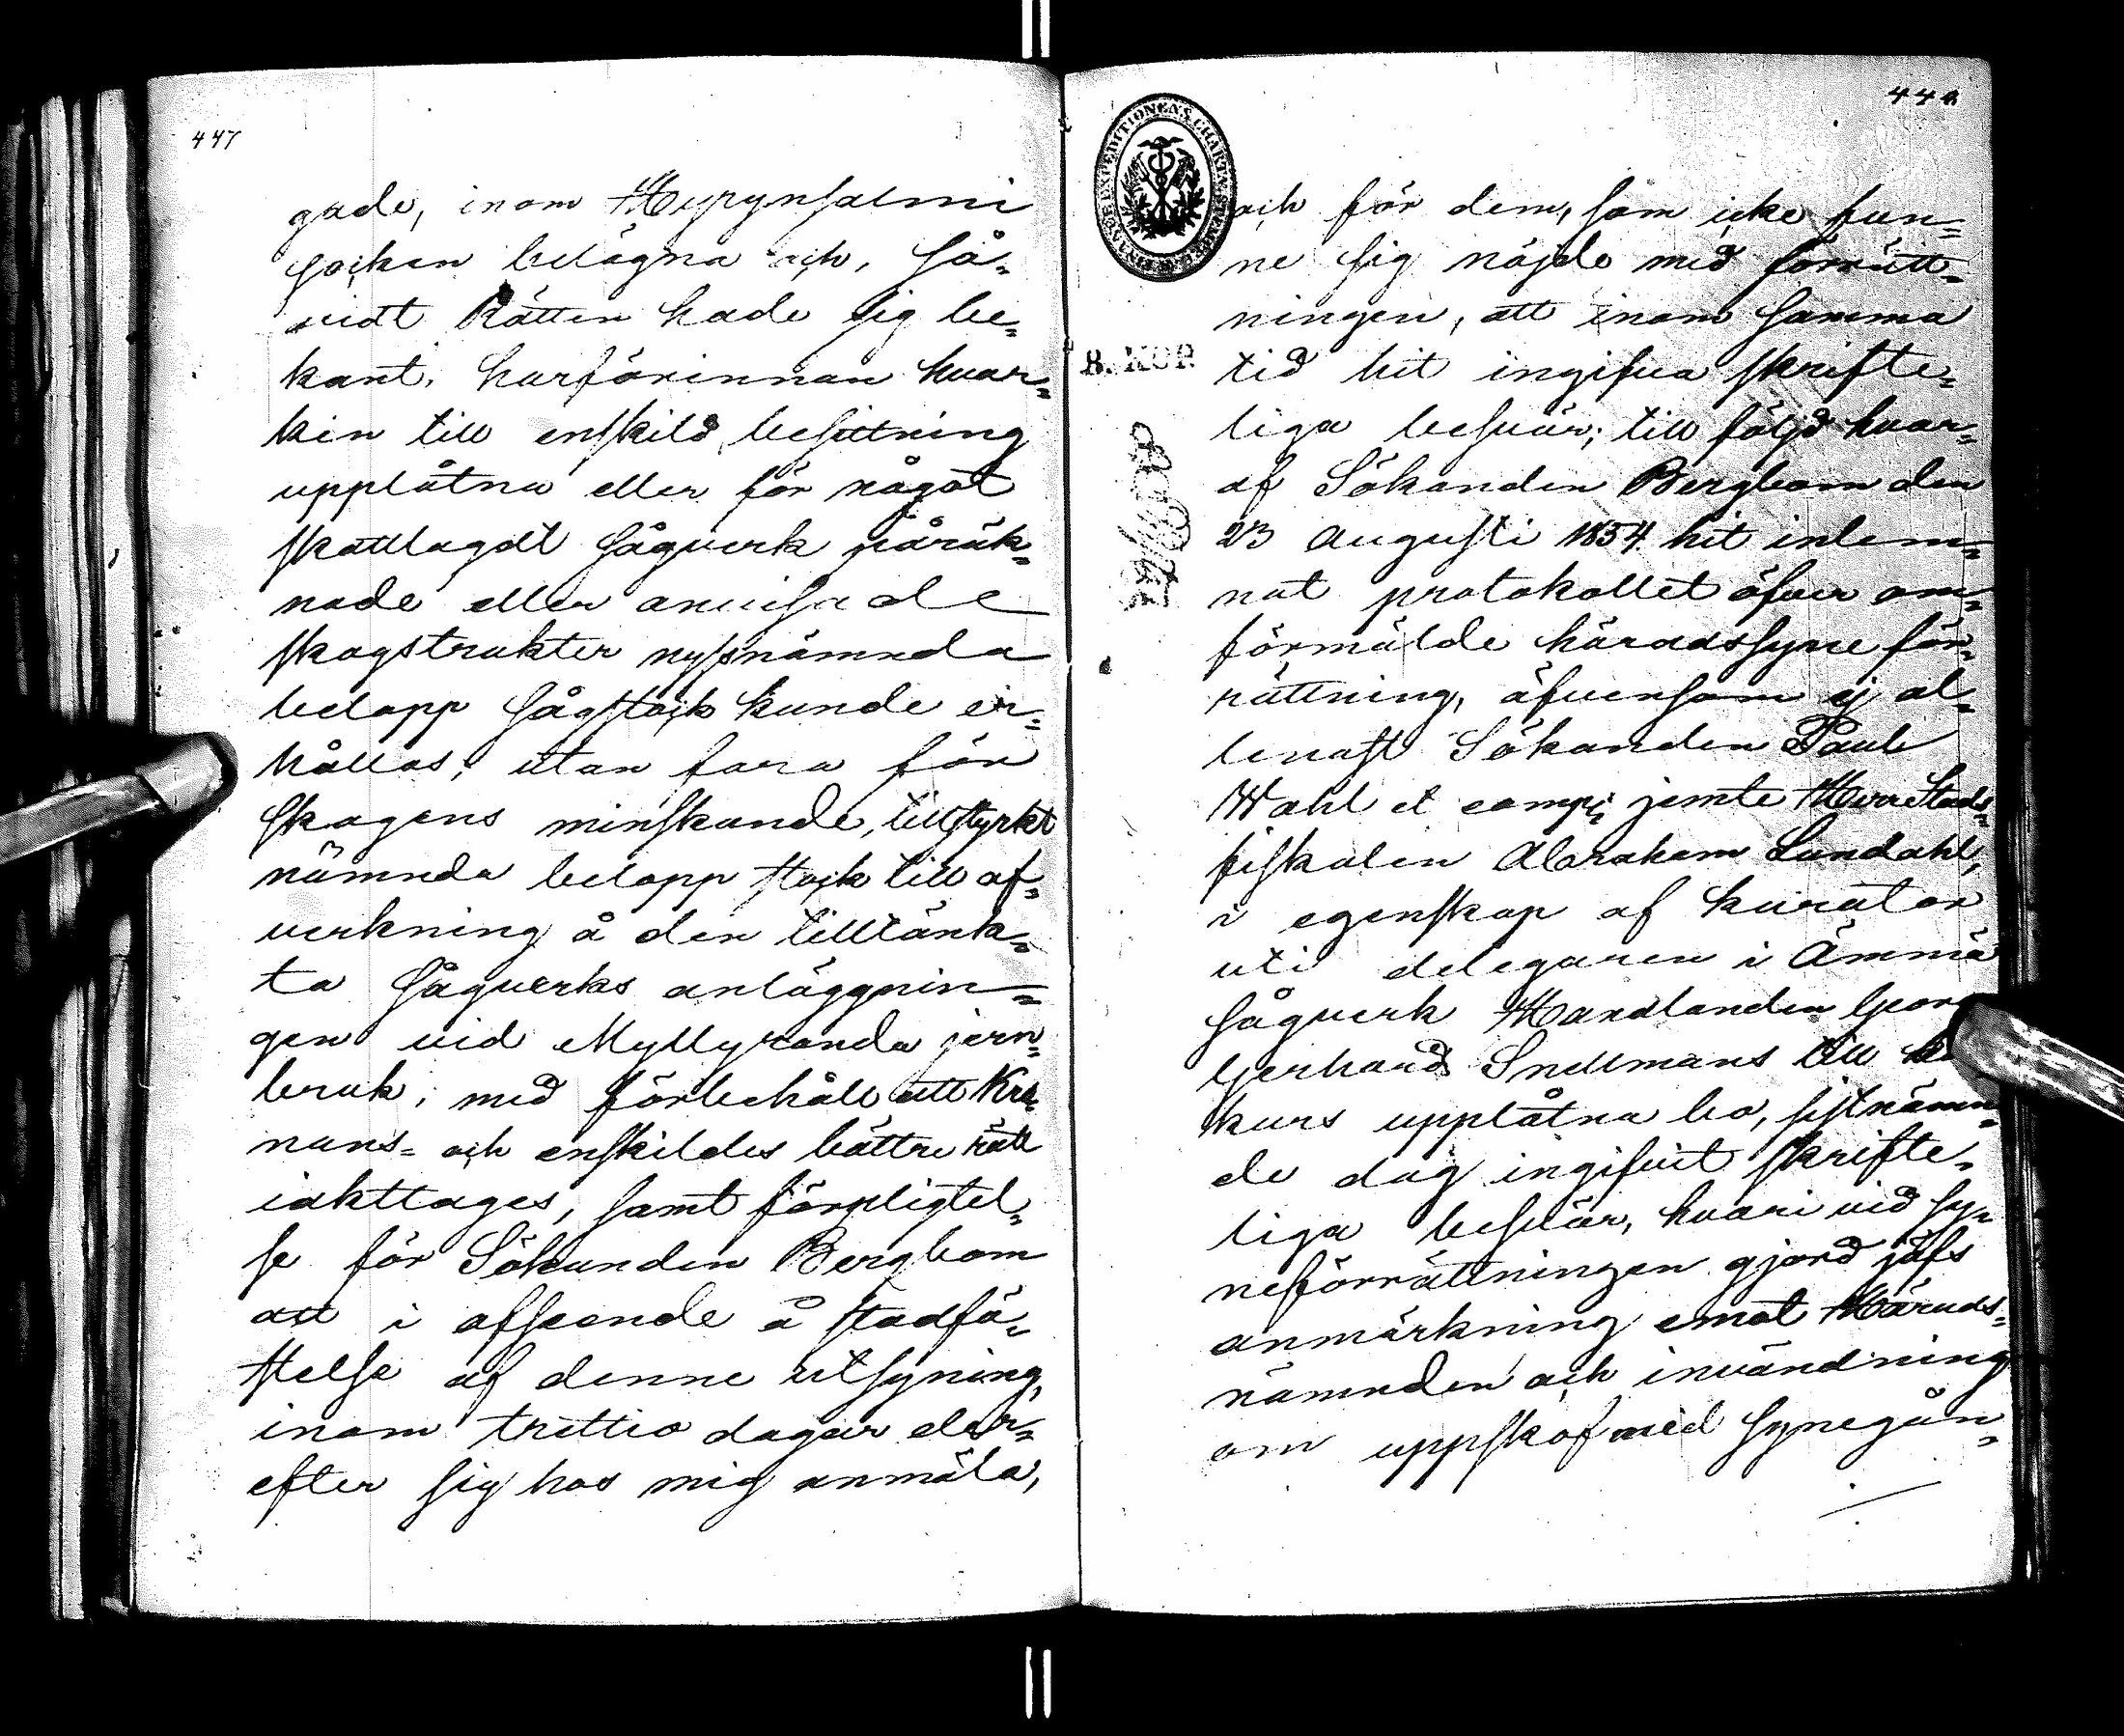 447
gade, inom Hyrynsalmi
socken belägna och, så-
vidt Rätten hade sig be-
kant, härförinnan hvar-
kin till enskild besittning
upplåtna eller för något
skattlagdt sågverk påräk-
nade eller anvisade
skogstrakter nyssnämnda
belopp sågstock kunde er-
hållas, utan fara för
skogens minskande, tillstyrkt
nämnda belopp stock till af-
verkning å den tilltänk-
ta sågverks anläggnin-
gen vid Myllyranda jern-
bruk; med förbehåll att Kro-
nans- och enskildes bättre rätt
iakttages, samt förpligtel-
se för Sökanden Bergbom
att i afseende å stadfä-
stelse af denne utsyning,
inom trettio dagar der-
efter sig hos mig anmäla,
448
och för dem, som icke fun-
ne sig nöjde med förrätt-
ningen, att inom samma
tid hit ingifva skrifte-
liga besvär; till följd hvar-
af Sökanden Bergbom den
23 Augusti 1854 hit inlem-
nat protokollet öfver om-
förmälde häradssyne för-
rättning, äfvensom ej al-
lenast Sökanden Paul
Wahl et comp; jemte Herr Stads-
fiskalen Abraham Lundahl,
i egenskap af kurator
uti delegaren i Ämmä
sågverk Handlanden Georg
Gerhard Snellmans till
kurs upplåtna bo, sistnämn-
de dag ingifvit skrifte-
liga besvär, hvari vid sy-
neförrättningen gjord jäfs
anmärkning emot Härads-
nämnden och invändning
om uppskof med synegån-